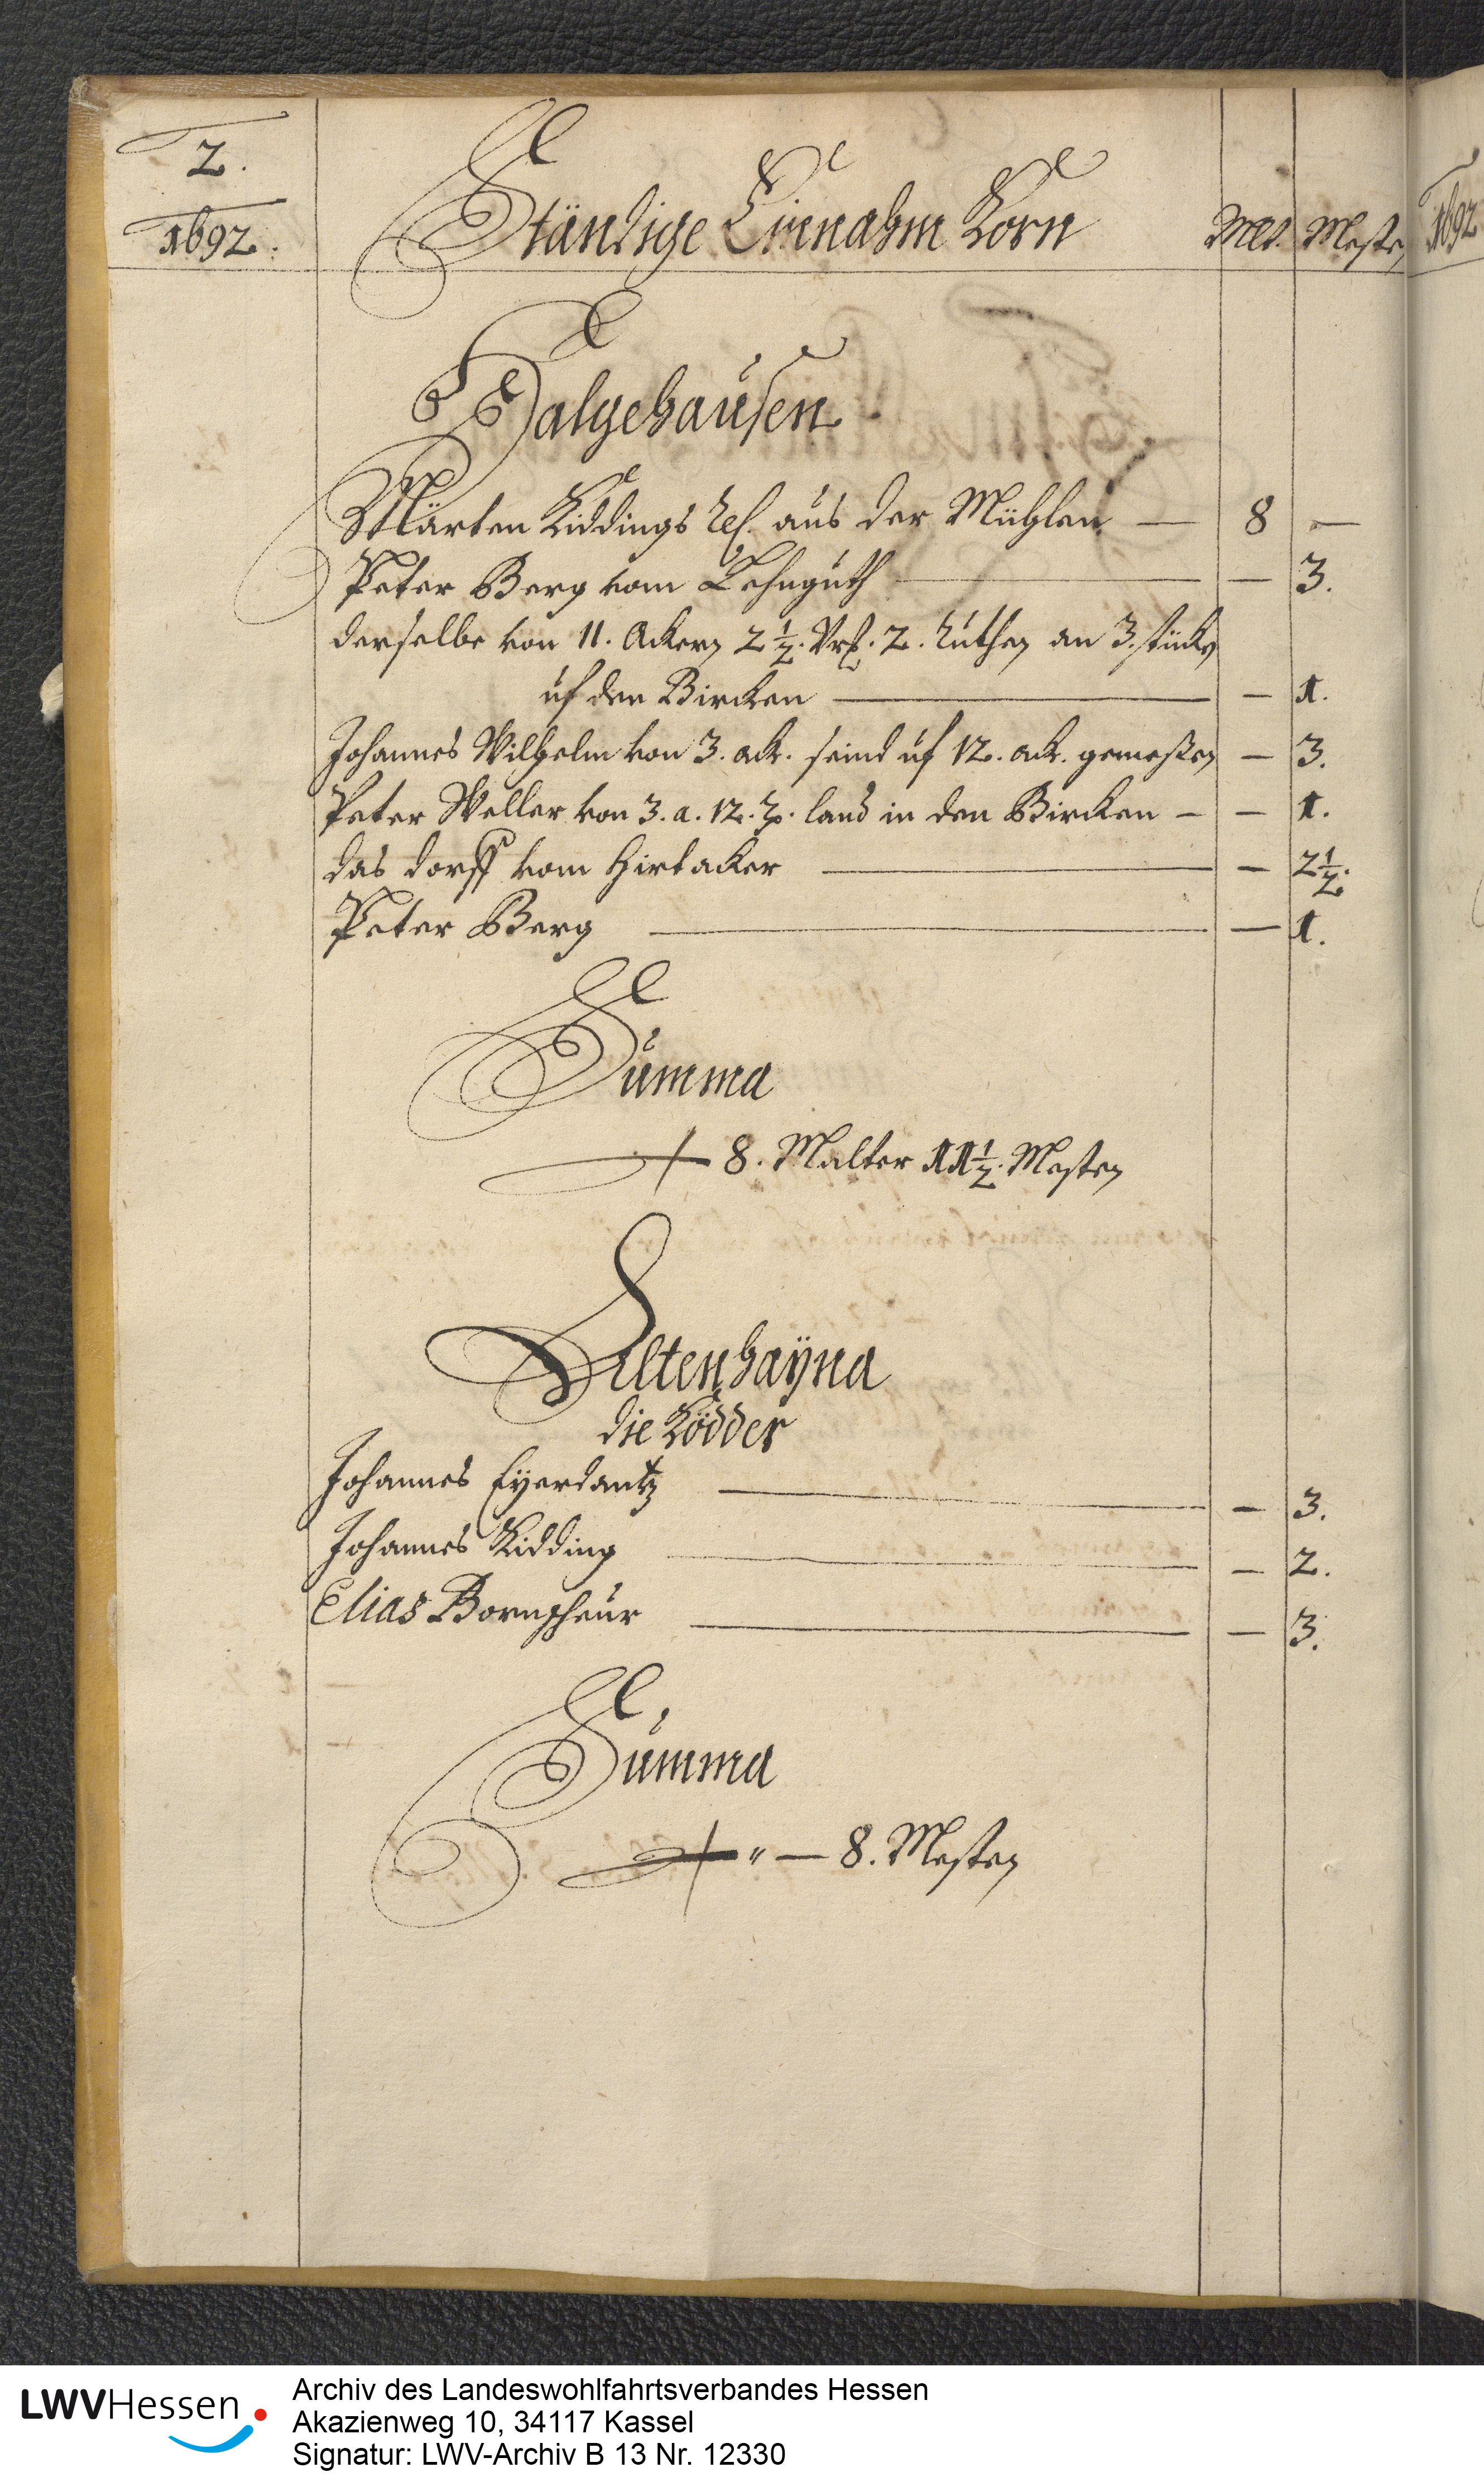 2.
1692.
Ständige Einnahm Korn Mlr. Mesten
1692
Halgehausen
Märten Riddings Rel. aus der Mühlen — 8 —
Peter Berg vom Lehnguth — — 3.
derselbe von 11. Ackern 2 1/2. Vrt. 2. Ruthen an 3. stücken
uf den Bircken — — 1.
Johannes Wilhelm von 3. ack. seind uf 12. ack. gemeßen — 3.
Peter Weller von 3. a. 12. R. land in den Bircken — — 1.
das dorff vom Hirtacker — — 2 1/2.
Peter Berg — — 1.
Summa
8. Malter 11 1/2. Mesten
Altenhaÿna
die Rödder
Johannes Eÿerdantz — — 3.
Johannes Ridding — — 2.
Elias Bornscheur — — 3.
Summa
" — 8. Mesten
LWVHessen
Archiv des Landeswohlfahrtsverbandes Hessen
Akazienweg 10, 34117 Kassel
Signatur: LWV-Archiv B 13 Nr. 12330